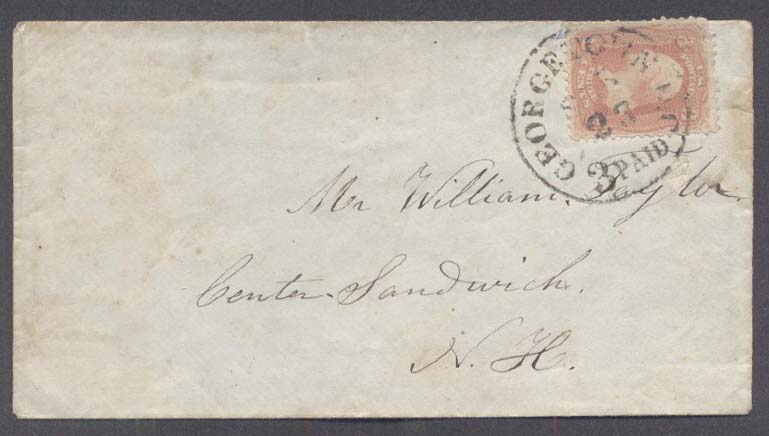 GEORGETOWN
3 PAID
Mr William Taylor
Center-Sandwich.
N. H.